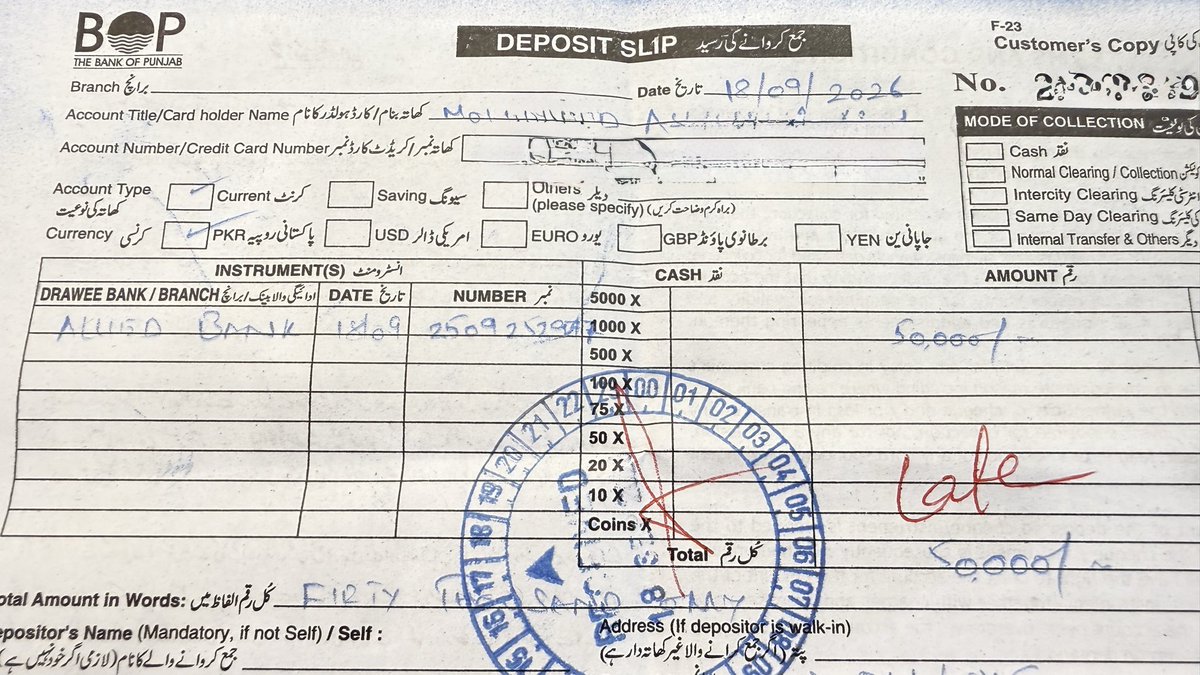 BOP
THE BANK OF PUNJAB
DEPOSIT SL1P جمع کروانے کی رَسید
F-23
Customer's Copy کی کاپی
Branch برانچ
Date تاریخ 18/09/2026
No.
Account Title/Card holder Name کھاتہ بنام/کارڈ ہولڈر کا نام
Account Number/Credit Card Number کھاتہ نمبر/کریڈٹ کارڈ نمبر
MODE OF COLLECTION
Cash نقد
Normal Clearing / Collection
Intercity Clearing
Same Day Clearing
Internal Transfer & Others دیگر
Account Type کھاتہ کی نوعیت
Current کرنٹ Saving سیونگ Others دیگر (please specify) (براہ کرم وضاحت کریں)
Currency کرنسی PKR پاکستانی روپیہ USD امریکی ڈالر EURO یورو GBP برطانوی پاؤنڈ YEN جاپانی ین
INSTRUMENT(S) انسٹرومنٹ CASH نقد AMOUNT رقم
DRAWEE BANK / BRANCH ادائیگی والا بینک/برانچ DATE تاریخ NUMBER نمبر 5000 X
ALLIED BANK 18/09 1000 X 50,000/-
500 X
100 X
75 X
50 X
20 X
10 X
Late
Coins X
Total کل رقم 50,000/-
22 23 00 01 02 03 04 05 06 07
21 20 19 18 17 16 15
otal Amount in Words: کل رقم الفاظ میں FIRTY THOUSAND ONLY
epositor's Name (Mandatory, if not Self) / Self :
جمع کروانے والے کا نام (لازمی اگر خود نہیں ہے)
Address (If depositor is walk-in)
پتہ (اگر جمع کرانے والا غیر کھاتہ دار ہے)